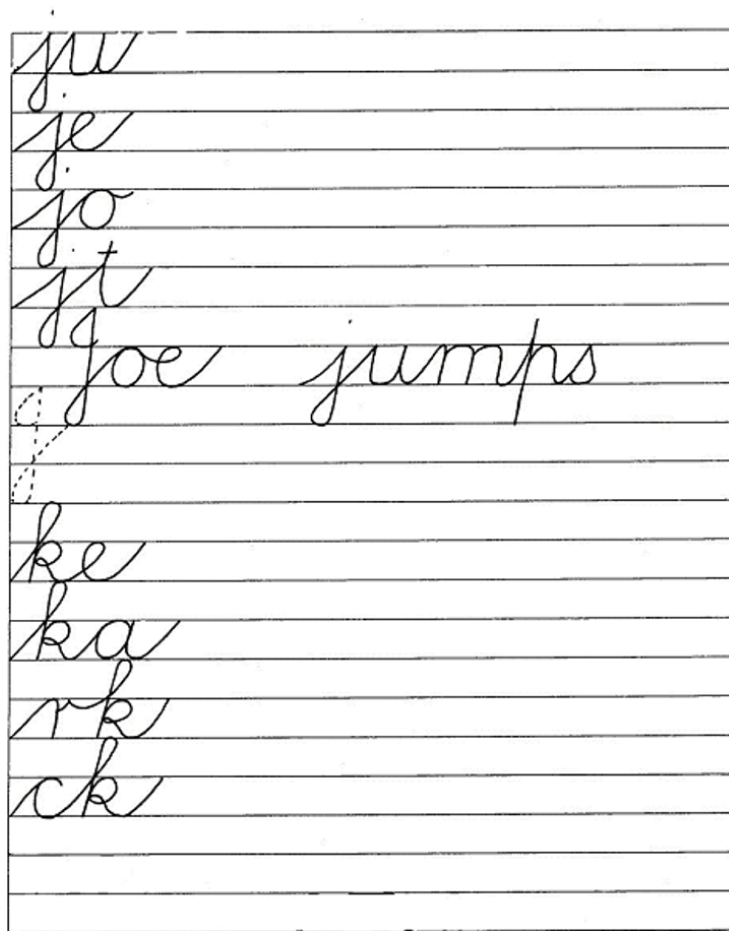 ju
je
jo
jt
Joe jumps
J
ke
ka
rk
ck